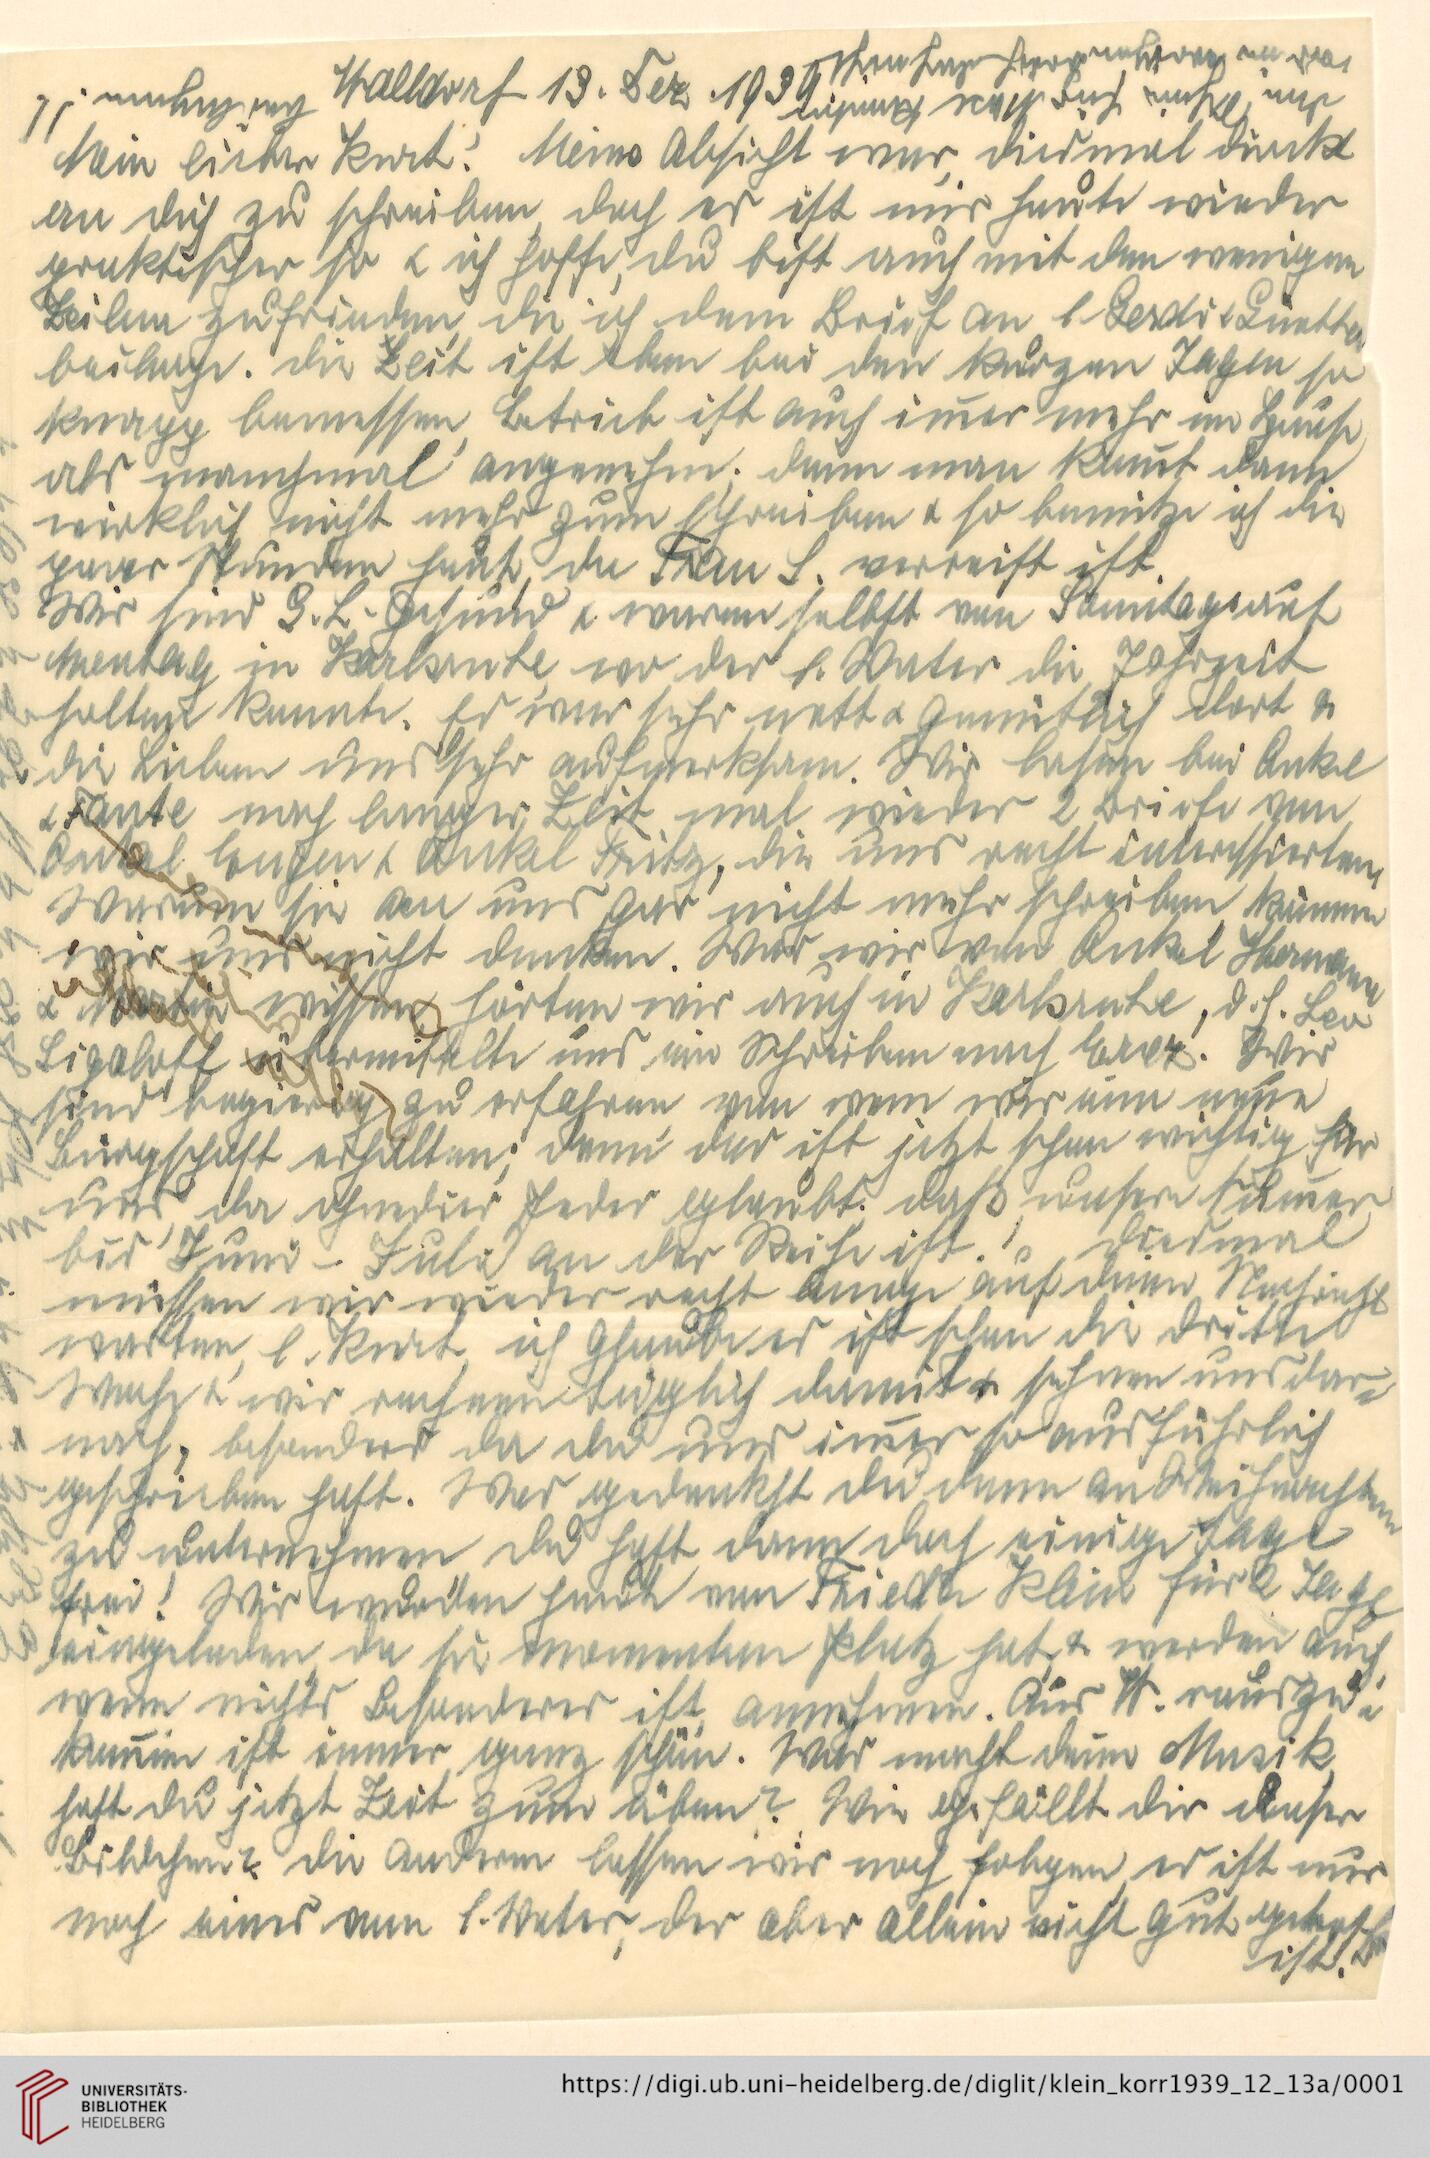 Walldorf 13. Dez. 1939
Mein lieber Kurt! Meine Absicht war, diesmal direkt
an dich zu schreiben, doch es ist mir heute wieder
praktischer so & ich hoffe, du bist auch mit den wenigen
Zeilen zufrieden, die ich dem Brief an l. Gerdi &
beilege. Die Zeit ist eben bei den kurzen Tagen so
knapp bemessen, Betrieb ist auch im̅er mehr im Hause,
als manchmal angenehm; denn man kommt dann
wirklich nicht mehr zum Schreiben & so benütze ich die
paar Stunden heute, da Frau S. verreist ist.
Wir sind G. L. gesund & waren selbst von Sonntag auf
Montag in Karlsruhe, wo der l. Vater die Jahrzeit
halten konnte. Es war sehr nett & gemütlich dort &
die Lieben uns sehr aufmerksam. Wir lasen bei Onkel
& Tante nach langer Zeit mal wieder 2 Briefe von
Onkel Eugen & Onkel Fritz, die uns recht interessierten,
Warum sie an uns gar nicht mehr schreiben, können
wir uns nicht denken. Was wir von Onkel Hermann
& wissen, hörten wir auch in Karlsruhe, d. h. Leo
übermittelte uns ein Schreiben nach. Wir
sind begierig zu erfahren, von wem wir nun neue
Bürgschaft erhalten; denn das ist jetzt schon wichtig für
uns, da ohnedies Jeder glaubt, daß unsere Num̅er
bis Juni - Juli an der Reihe ist! Diesmal
müssen wir wieder recht lange auf deine Nachricht
warten, l. Kurt, ich glaube es ist schon die dritte
Woche & wir rechnen täglich damit & sehnen uns dar-
nach, besonders da du uns im̅er so ausführlich
geschrieben hast. Was gedenkst du denn an Weihnachten
zu unternehmen, du hast dann doch einige Tage
frei! Wir wurden heute von Frieda Klein für 2 Tage
eingeladen, da sie momentan Platz hat, & werden auch,
wenn nichts Besonderes ist, annehmen. Aus W. rauszu-
kommen ist immer ganz schön. Was macht deine Musik,
hast du jetzt Zeit zum üben? Wie gefällt dir unser
Bildchen? Die anderen lassen wir noch folgen, es ist nur
noch eines vom l. Vater, der aber allein nicht gut
ist.
UNIVERSITÄTS-
BIBLIOTHEK
HEIDELBERG
https://digi.ub.uni-heidelberg.de/diglit/klein_korr1939_12_13a/0001